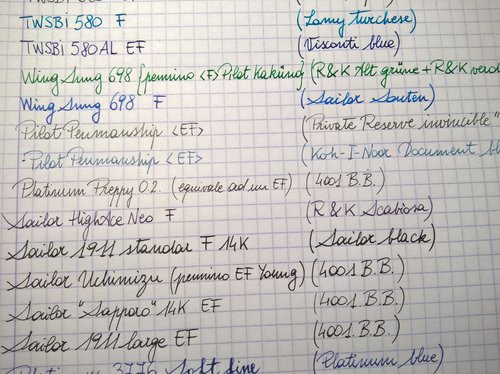 TWSBI 580 F (Lamy turchese)
TWSBI 580AL EF (Visconti blue)
Wing Sung 698 (pennino <F> Pilot Kakuno) (R&K Alt grüne + R&K verd
Wing Sung 698 F (Sailor Souten)
Pilot Penmanship <EF> (Private Reserve
Pilot Penmanship <EF> (Koh-I-Noor Document
Platinum Preppy 02 (equivale ad un EF) (4001 B.B.)
Sailor HighAce Neo F (R&K Scabiosa)
Sailor 1911 standard F 14K (Sailor black)
Sailor (pennino EF Young) (4001 B.B.)
Sailor "Sapporo" 14K EF (4001 B.B.)
Sailor 1911 large EF (4001 B.B.)
Platinum 3776 Soft fine (Platinum blue)